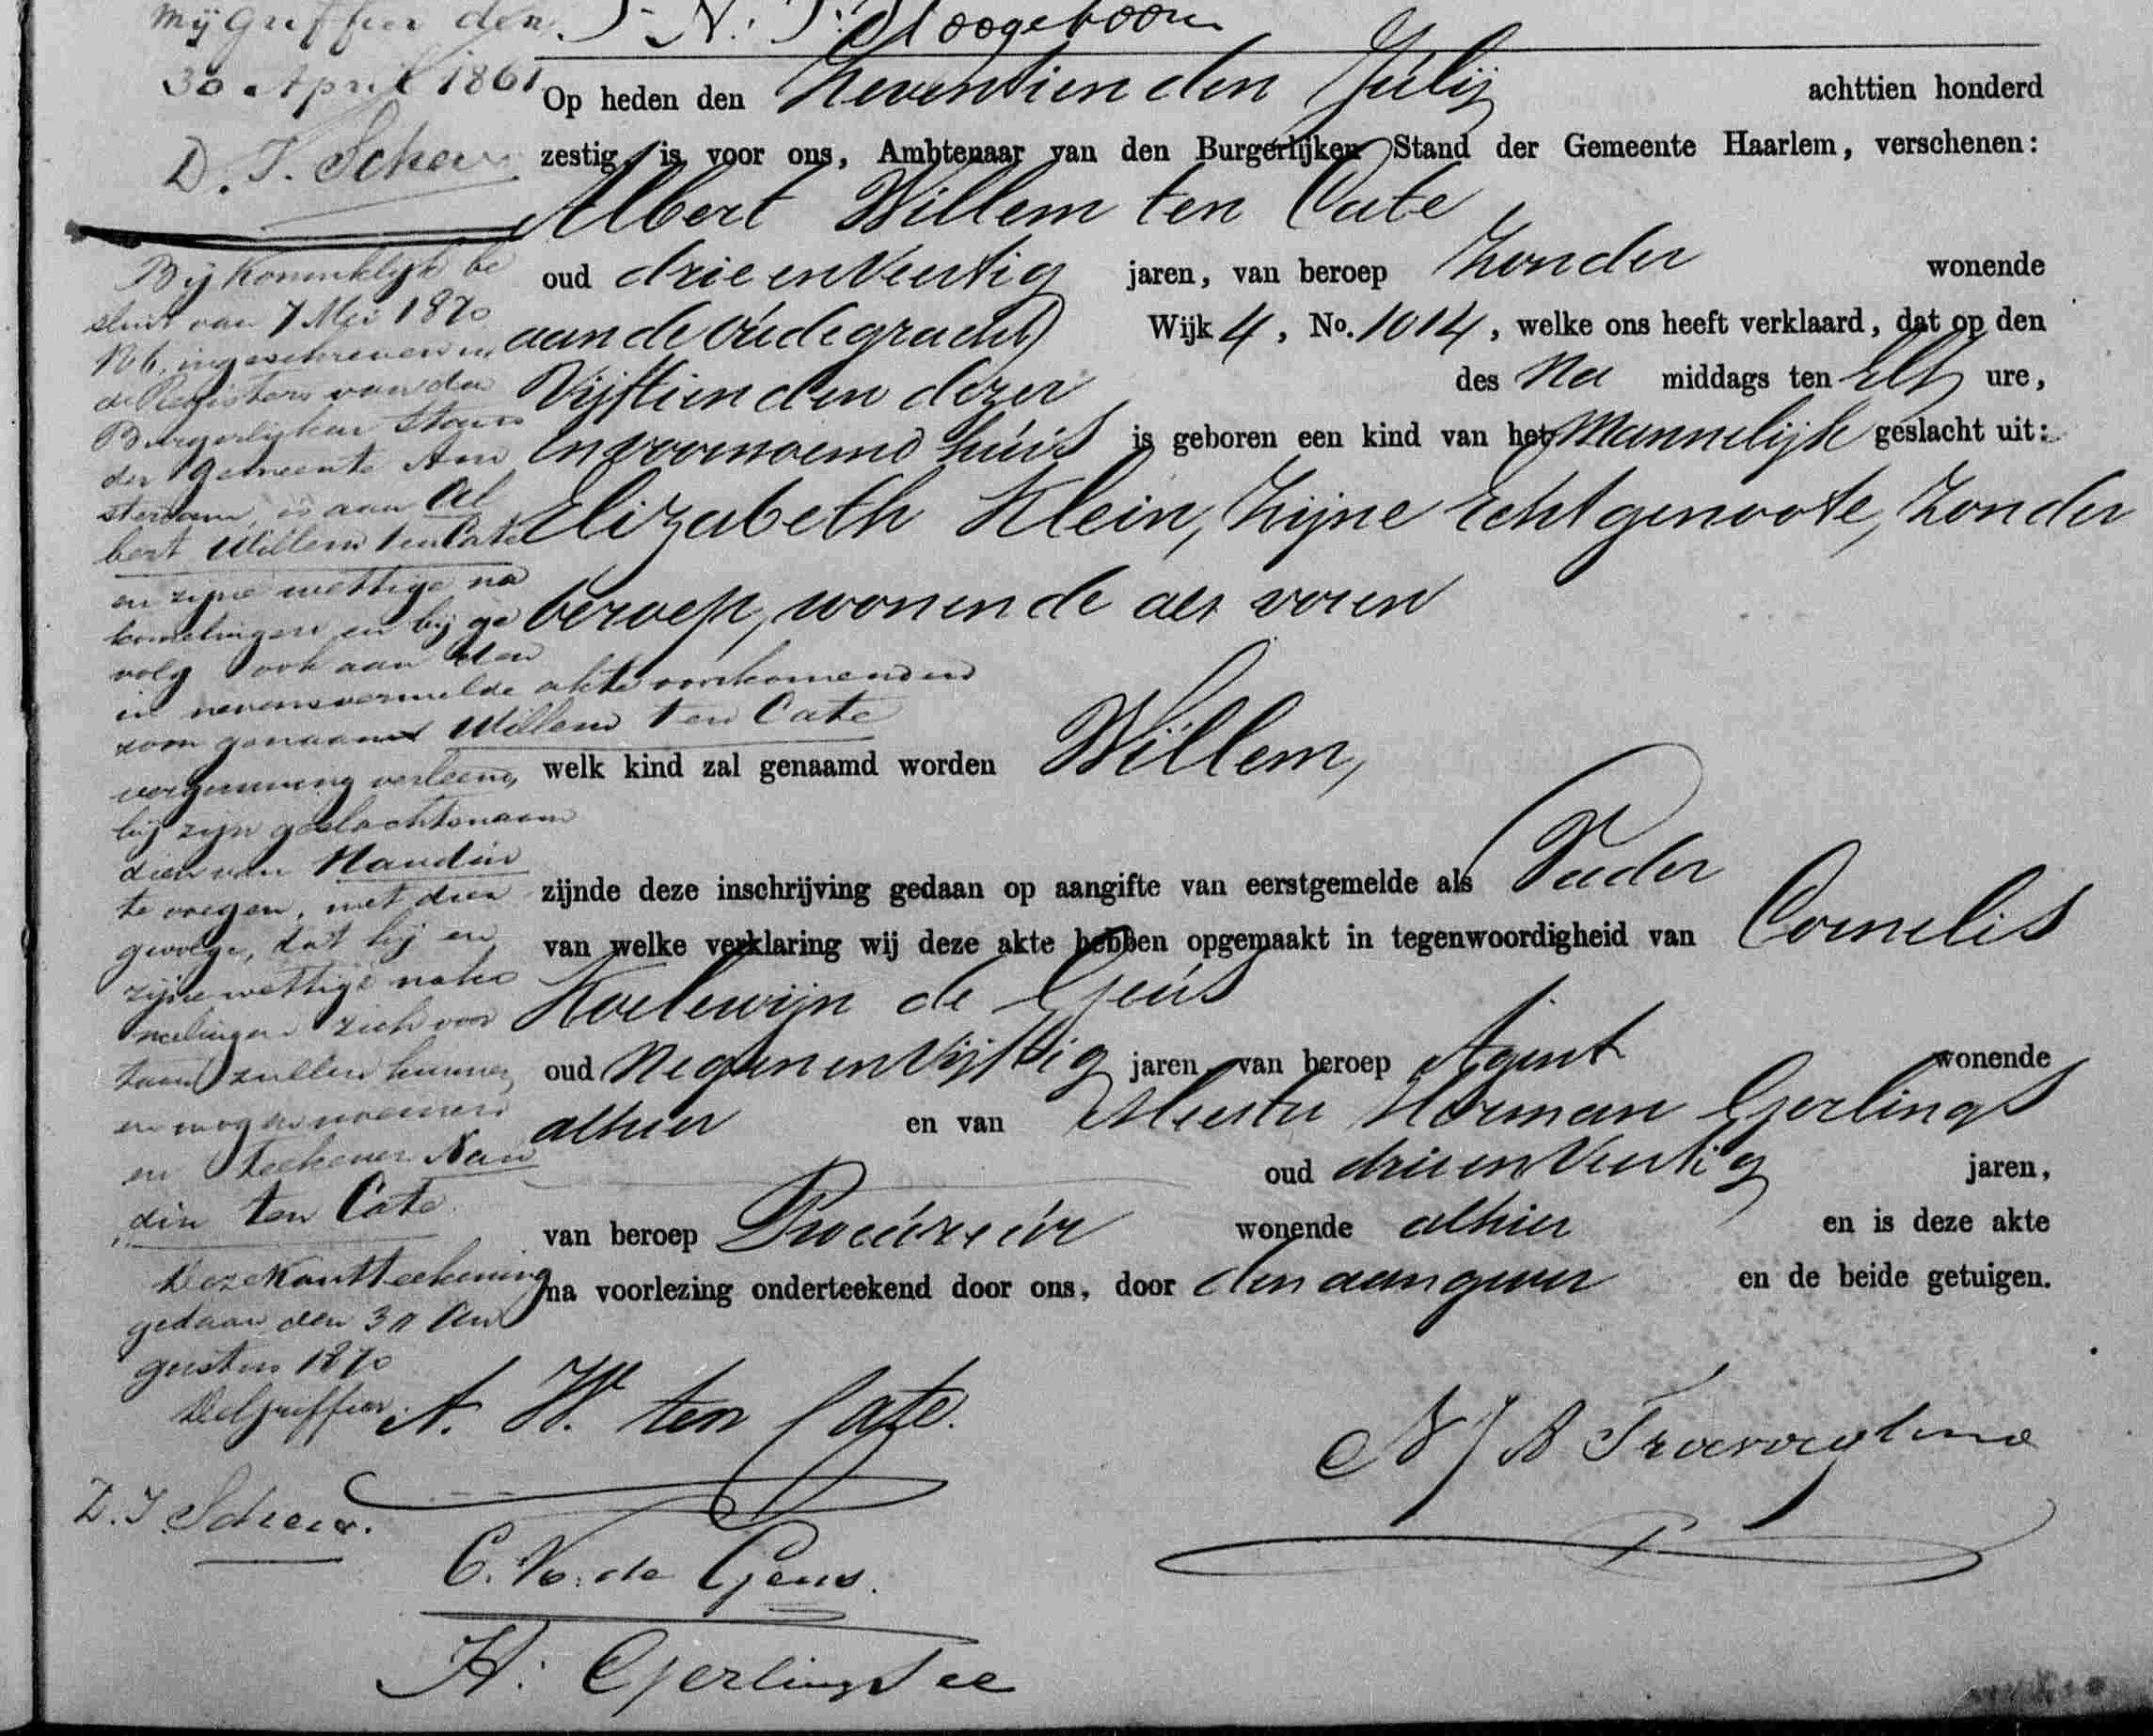 mijn Griffier den
30 April 1861
D. J. Scheer
Hoogeboom
Op heden den Zeventienden Julij achttien honderd
zestig, is voor ons, Ambtenaar van den Burgerlijken Stand der Gemeente Haarlem, verschenen:
Albert Willem ten Cate
oud drie en Veertig jaren, van beroep Zonder wonende
aan de oúde gracht Wijk 4, No. 1014, welke ons heeft verklaard, dat op den
Vijftienden dezer des Na middags ten Elf ure,
in voornoemd húis is geboren een kind van het Mannelijk geslacht uit:
Elizabeth Klein, Zijne Echtgenoote, Zonder
beroep, wonende als voren
welk kind zal genaamd worden Willem,
zijnde deze inschrijving gedaan op aangifte van eerstgemelde als Vader
van welke verklaring wij deze akte hebben opgemaakt in tegenwoordigheid van Cornelis
Koelewijn de Geús
oud Negen en Vijftig jaren, van beroep Agent wonende
alhier en van Meester Herman Gerlings
oud drie en Veertig jaren,
van beroep Procúreúr wonende alhier en is deze akte
na voorlezing onderteekend door ons, door den aangever en de beide getuigen.
Bij Koninklijk be
sluit van 7 Mei 1870
No 6, ingeschreven in
de Registers van den
Burgerlijken Stand
der Gemeente Am
sterdam, is aan Al
bert Willem ten Cate
en zijne wettige na
komelingen en bij ge
volg ook aan den
in nevensvermelde akte voorkomenden
zoon genaamd Willem ten Cate
vergunning verleend,
bij zijn geslachtsnaam
dien van Naudin
te voegen, met dien
gevolge, dat hij en
zijne wettige nako
melingen zich voor
taan zullen kunnen
en mogen noemen
en teekenen Nau
din ten Cate.
Deze Kantteekening
gedaan den 30 Au
gustus 1870
De Griffier.
D. J. Scheer.
A. W. ten Cate.
C. K. de Geus.
H. Gerlings